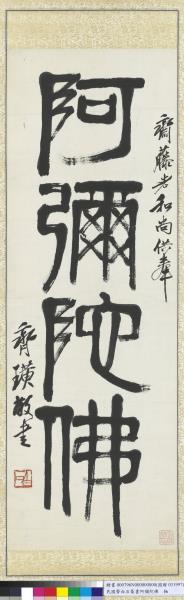 阿彌陀佛
齋藤老和尚供奉
齊璜敬書